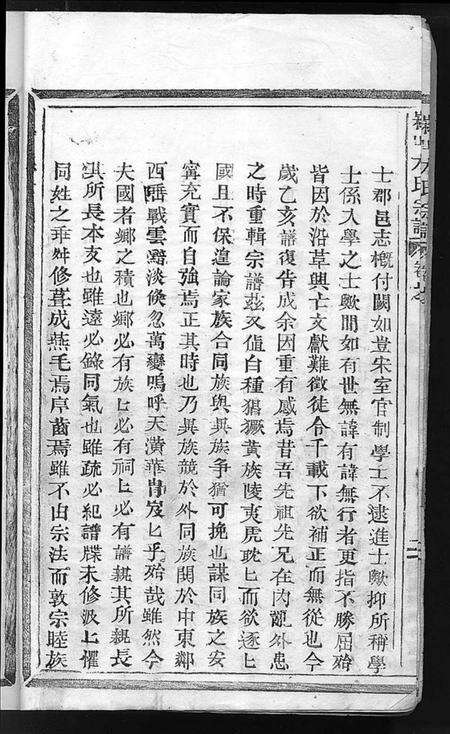 士郡邑志概付闕如豈宋室官制學士不逮進士歟抑所稱學
士係入學之士歟間如有世無諱有諱無行者更指不勝屈殆
皆因於沿革興亡文獻難徵徒令千載下欲補正而無從也今
歲乙亥譜復告成余因重有感焉昔吾先祖先兄在內亂外患
之時重輯宗譜茲又值白種猖獗黃族陵夷虎耽匕而欲逐匕
國且不保遑論家族合同族與異族爭猶可挽也謀同族之安
寗充實而自強焉正其時也乃異族競於外同族鬩於中東鄰
西陲戰雲黯淡倏忽萬變嗚呼天潢華胄岌匕乎殆哉雖然今
夫國者鄉之積也鄉必有族匕必有祠匕必有譜親其所親長
其所長本支也雖遠必錄同氣也雖疏必紀譜牒未修汲匕懼
同姓之乖舛修葺成燕毛焉序齒焉雖不由宗法而敦宗睦族
氏宗譜 卷
二